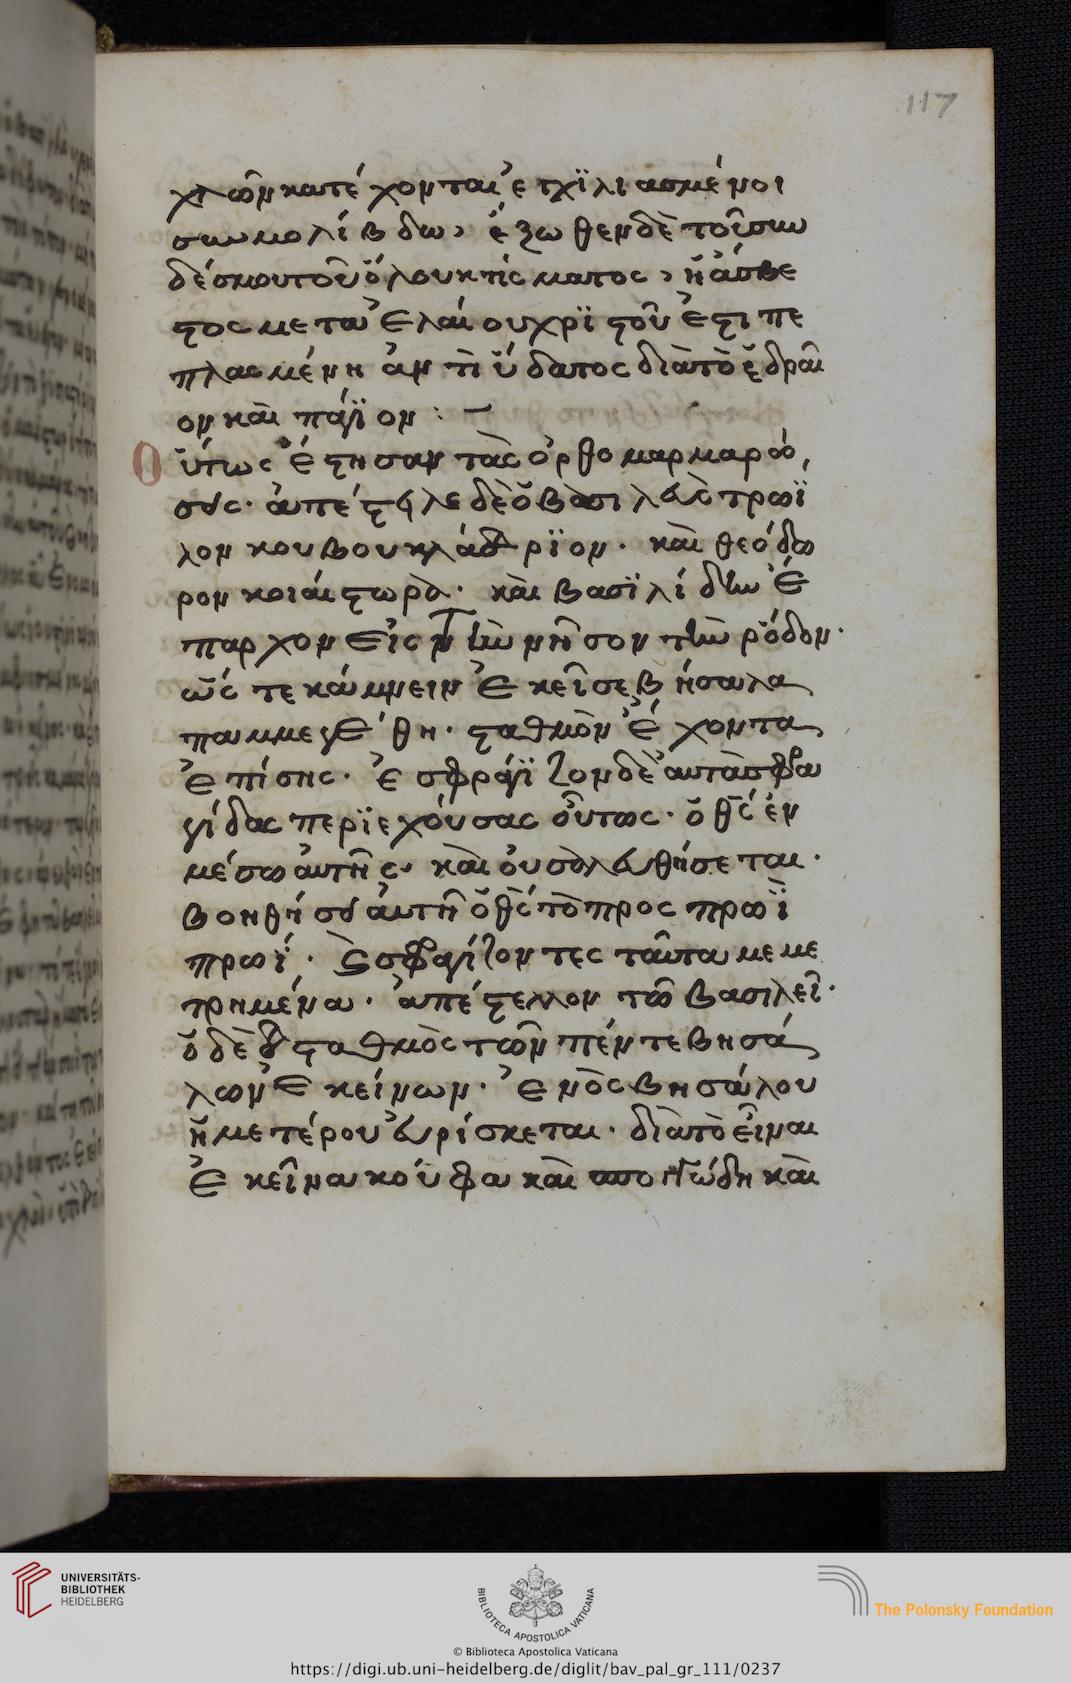 117
χλῶν κατέχονται ἐγχϊλιασμένοι
σὺν μολίβδω, ἔξωθεν δὲ τοῖς συν
δέσμου τοῦ ὅλου κτίσματος, ἡ ἄσβε
στος μετὰ ἐλαίου χρϊστοῦ ἐστι πε
πλασμένη ἀντὶ ὕδατος διὰ τὸ ἑδραῖ
ον καὶ πάγϊον :-
Οὕτως ἔστησαν τὰς ὀρθομαρμαρώ,
σεις· ἀπέστειλε δὲ ὁ βασιλεὺς τρωΐ
λον κουβουκλάριον· καὶ θεόδω
ρον κοιαίστωρα· καὶ βασϊλίδην ἔ
παρχον εἰς τὴν νῆσον τὴν ῥόδον·
ὥς τε κάμνειν ἐκεῖσε βήσαλα
παμμεγέθη· σταθμὸν ἔχοντα
ἐπίσης· ἐσφράγϊζον δὲ αὐτὰ σφρα
γίδας περϊεχούσας οὕτως· ὁ θς ἐν
μέσω αὐτῆς, καὶ οὐ σαλευθήσεται·
βοηθήσει αὐτῆ ὁ θς τὸ πρὸς πρωῒ
πρωί· καὶ σφραγίζοντες ταῦτα μεμε
τρημένα· ἀπέστελλον τῶ βασιλεῖ·
ὁ δὲ σταθμὸς τῶν πέντε βησά
λων ἐκείνων· ἑνὸς βησάλου
ἡμετέρου εὑρίσκεται· διὰ τὸ εἶναι
ἐκεῖνα κούφα καὶ σπογγώδη καὶ
UNIVERSITÄTS-
BIBLIOTHEK
HEIDELBERG
BIBLIOTECA APOSTOLICA VATICANA
The Polonsky Foundation
© Biblioteca Apostolica Vaticana
https://digi.ub.uni-heidelberg.de/diglit/bav_pal_gr_111/0237